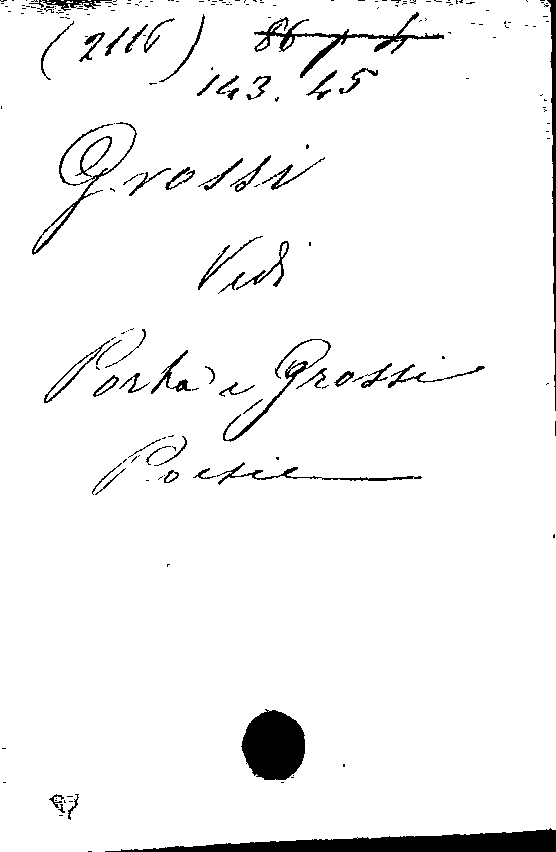 (2116) 86 p 4
143. 45
Grossi
Vedi
Porta e Grossi
Poesie